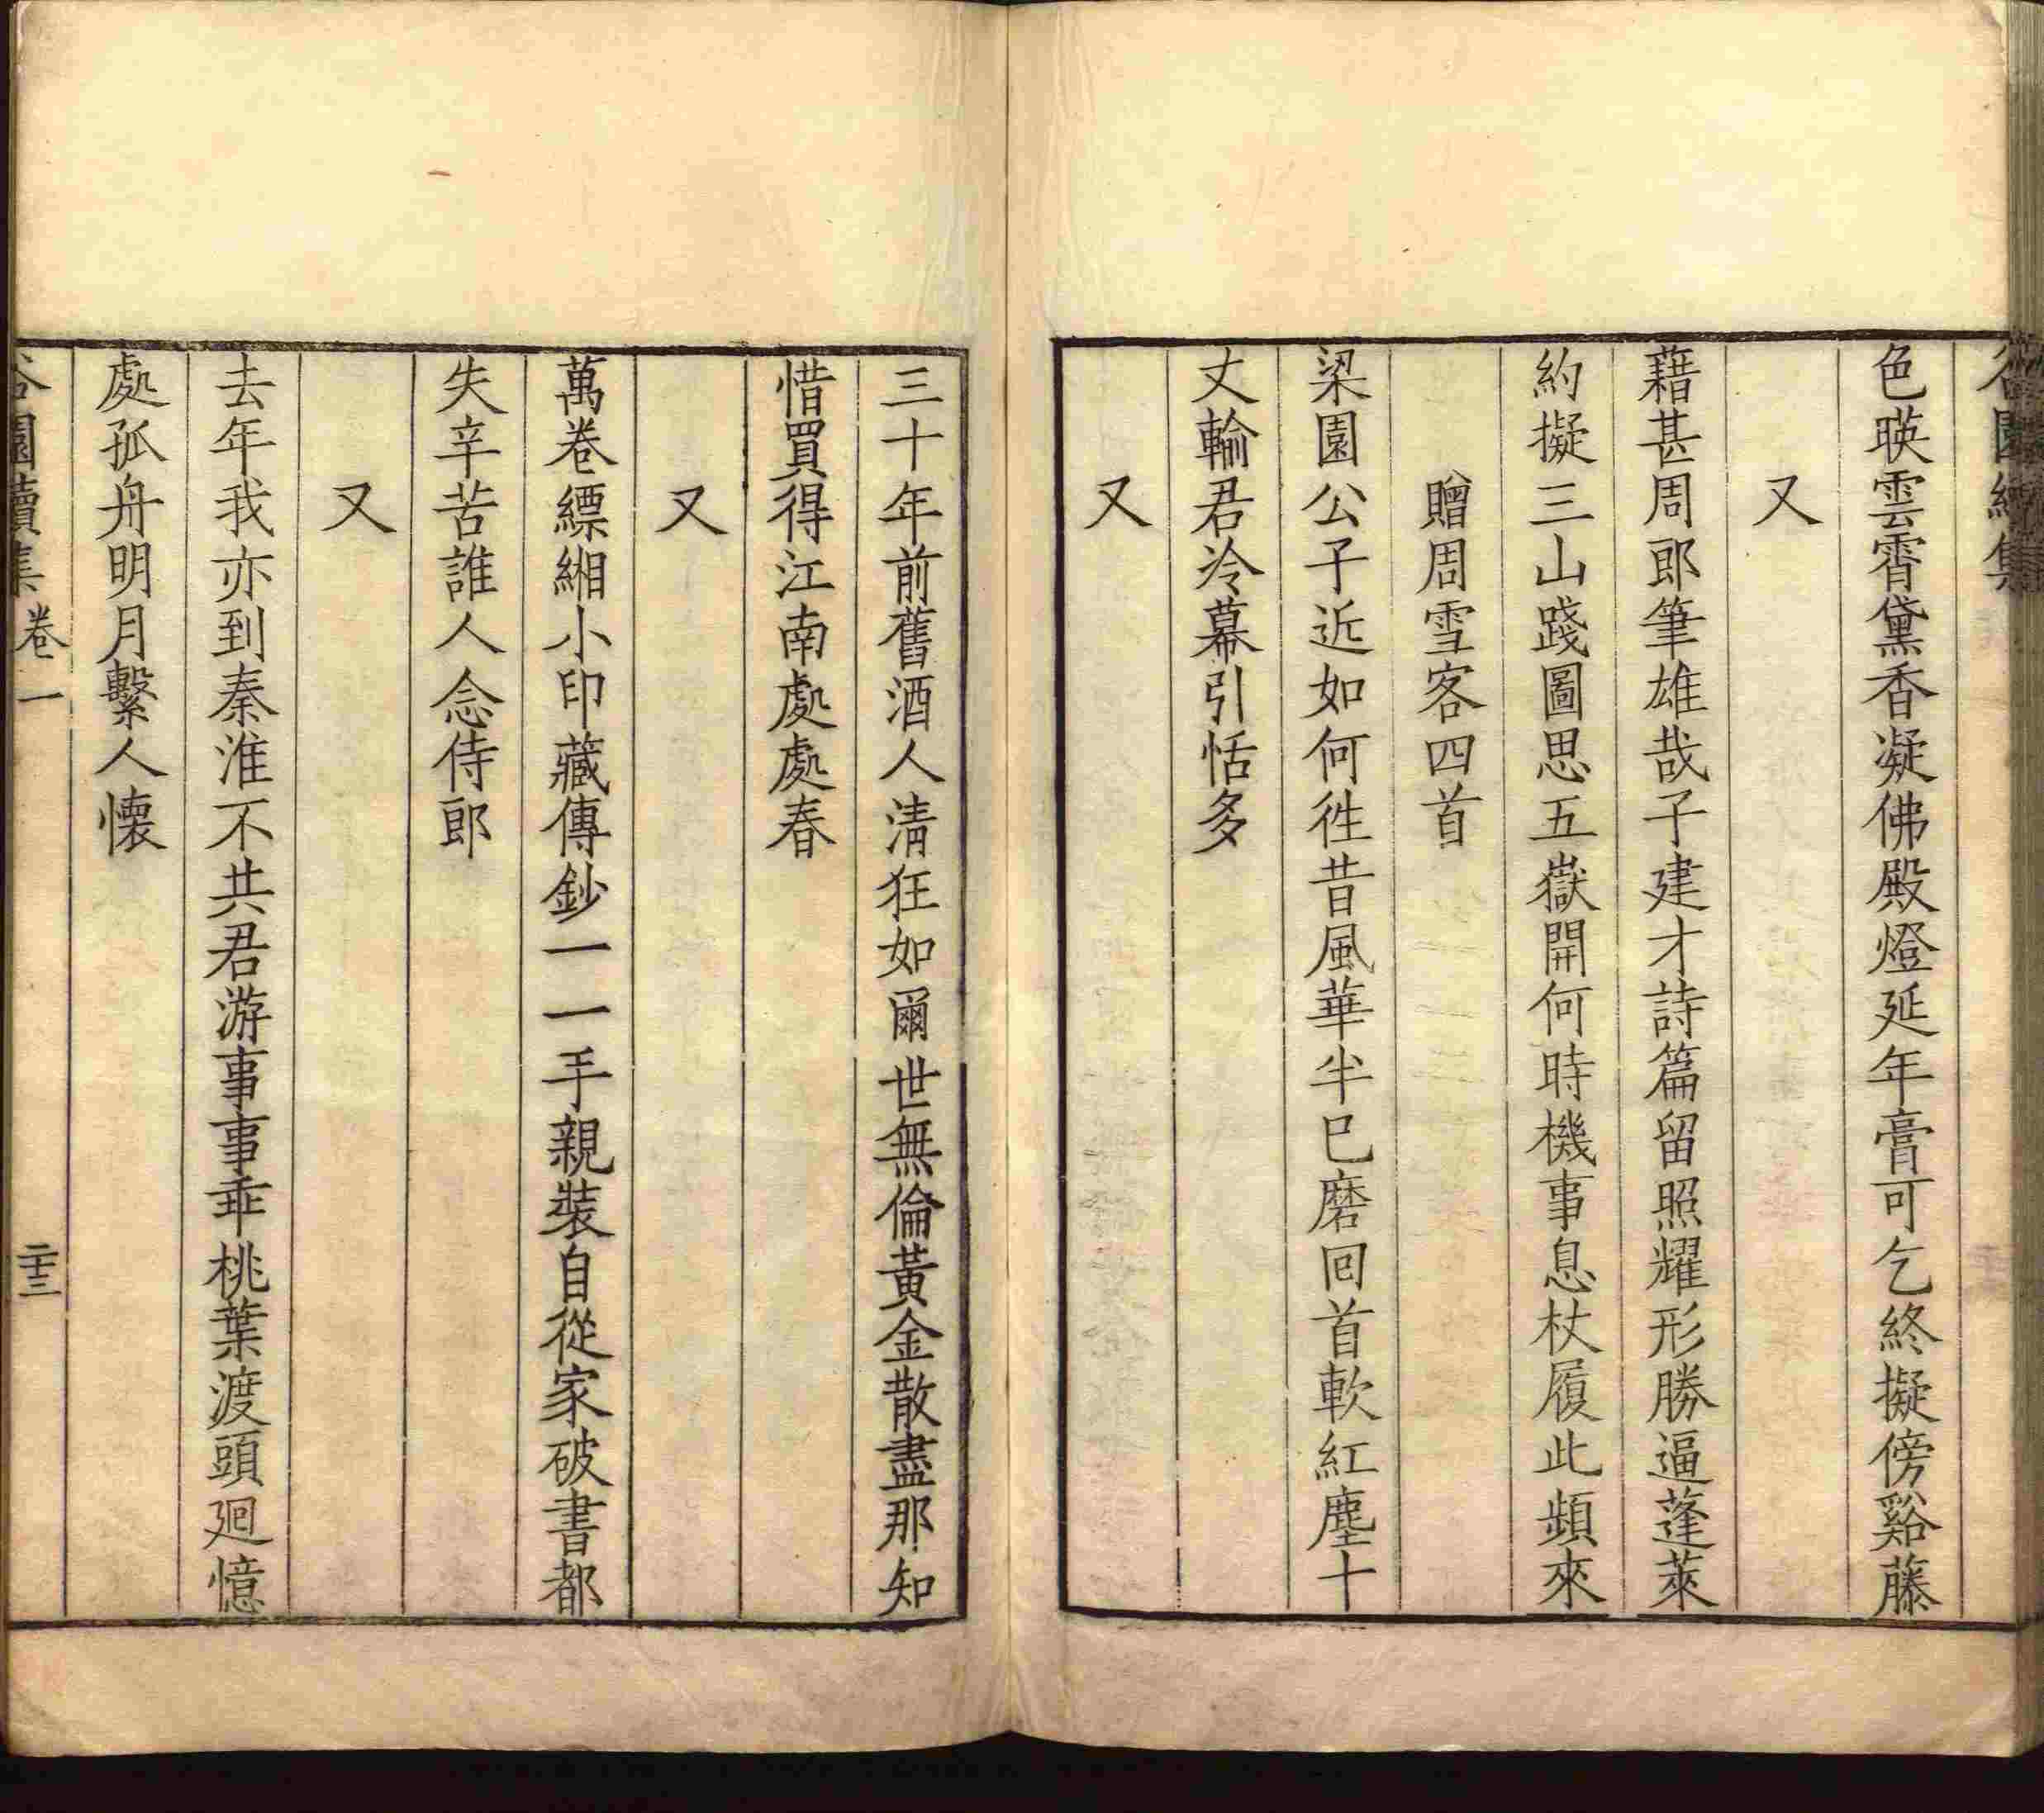 谷園續集
色暎雲霄黛香凝佛殿燈延年膏可乞終擬傍谿藤
又
藉甚周郎筆雄哉子建才詩篇留照耀形勝逼蓬萊
約擬三山踐圖思五嶽開何時機事息杖履此頻來
贈周雪客四首
梁園公子近如何徃昔風華半已磨回首軟紅塵十
丈輸君冷幕引恬多
又
三十年前舊酒人清狂如爾世無倫黃金散盡那知
惜買得江南處處春
又
萬卷縹緗小印藏傳鈔一一手親裝自從家破書都
失辛苦誰人念侍郎
又
去年我亦到秦淮不共君游事事乖桃葉渡頭廻憶
處孤舟明月繫人懐
谷園續集 卷一 二十三